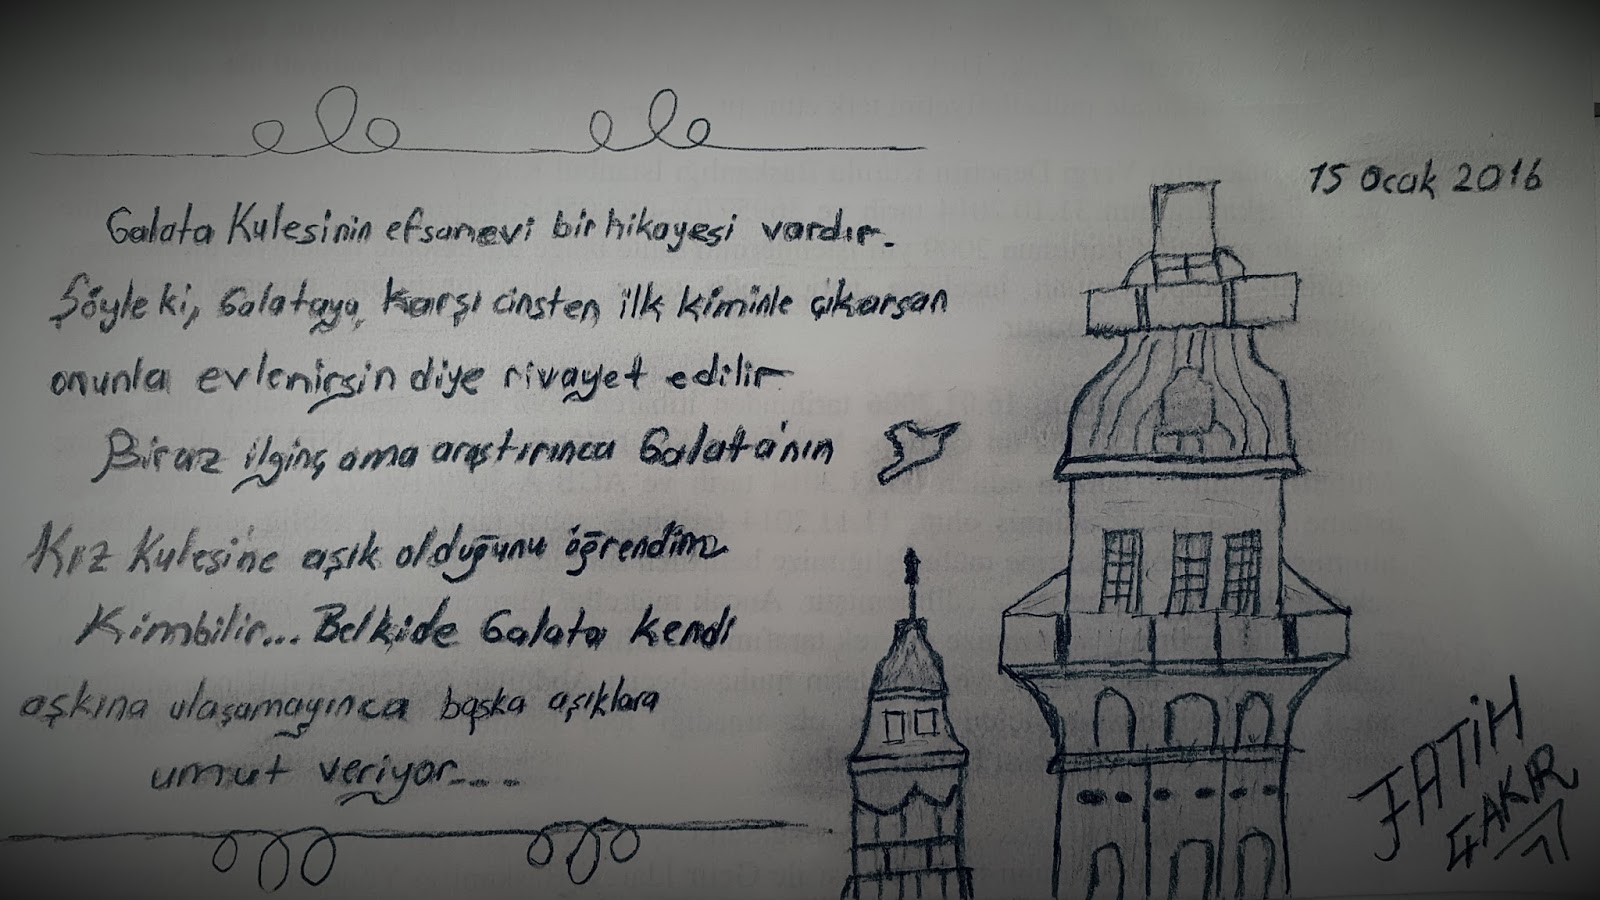 15 Ocak 2016
Galata Kulesinin efsanevi bir hikayesi vardır.
Şöyle ki, Galataya, karşı cinsten ilk kiminle çıkarsan
onunla evlenirsin diye rivayet edilir
Biraz ilginç ama araştırınca Galata'nın
Kız Kulesi'ne aşık olduğunu öğrendim
Kimbilir... Belkide Galata kendi
aşkına ulaşamayınca başka aşıklara
umut veriyor....
FATİH
ÇAKIR